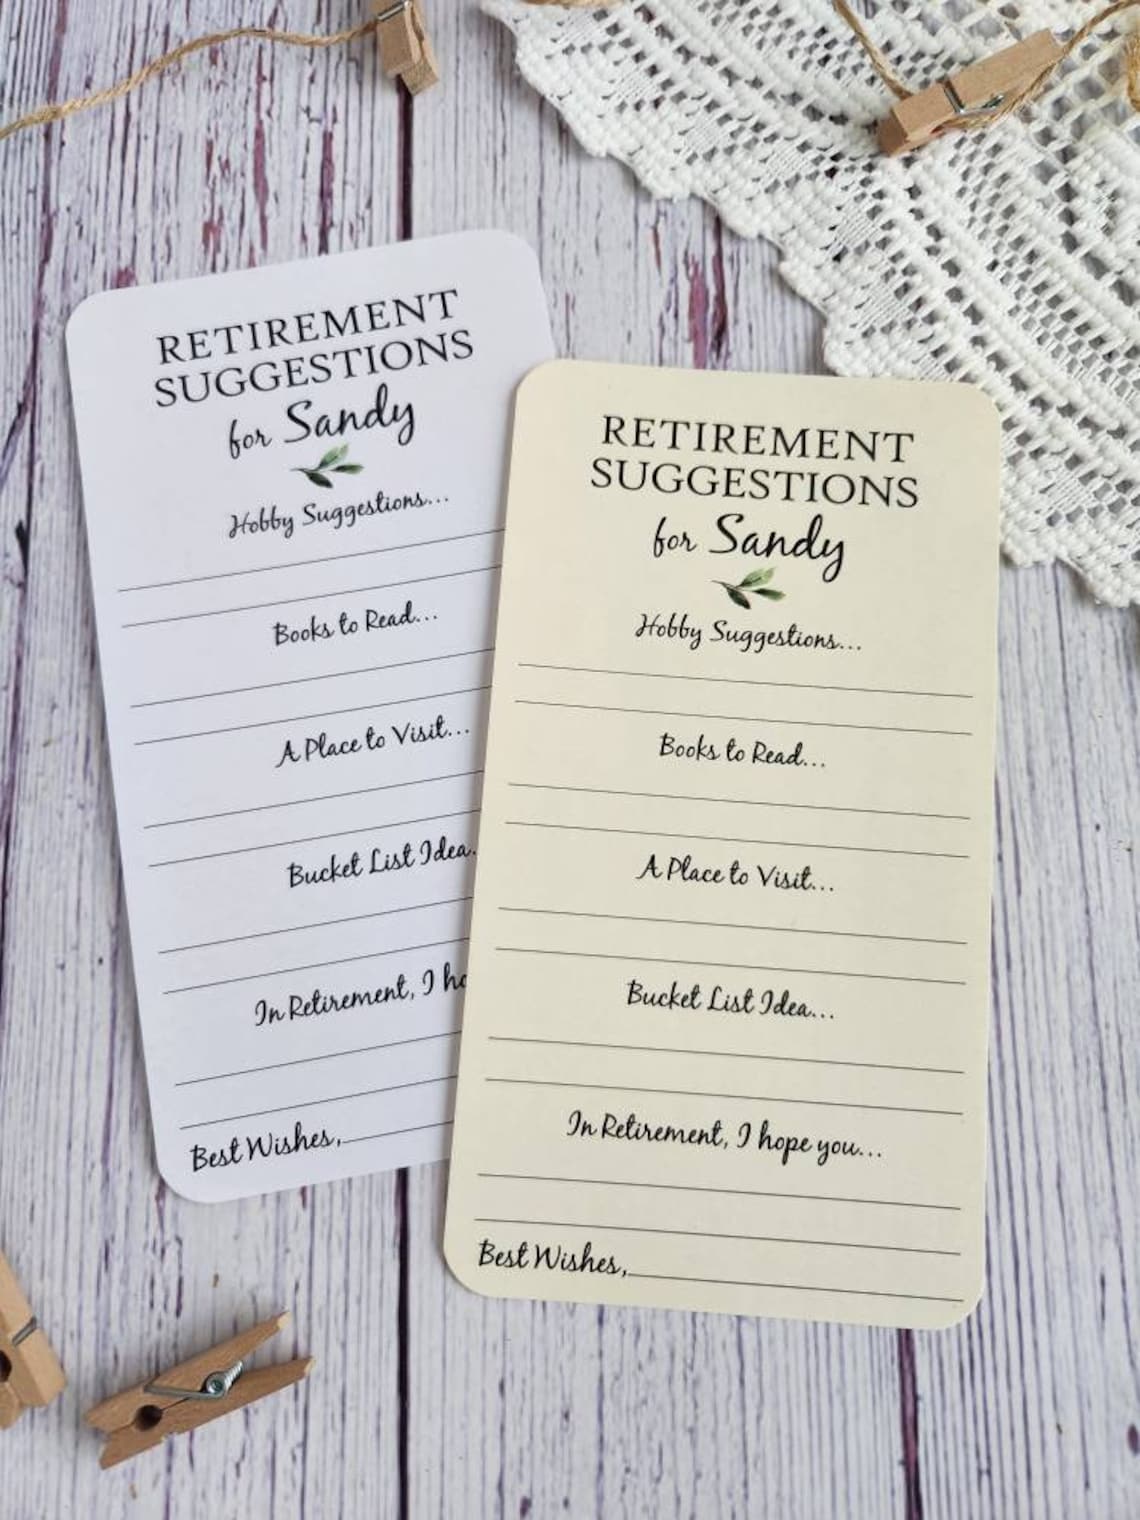 RETIREMENT
SUGGESTIONS
for Sandy
Hobby Suggestions...
Books to Read...
A Place to Visit...
Bucket List Idea.
In Retirement, I ho
Best Wishes,
RETIREMENT
SUGGESTIONS
for Sandy
Hobby Suggestions...
Books to Read...
A Place to Visit...
Bucket List Idea...
In Retirement, I hope you...
Best Wishes,